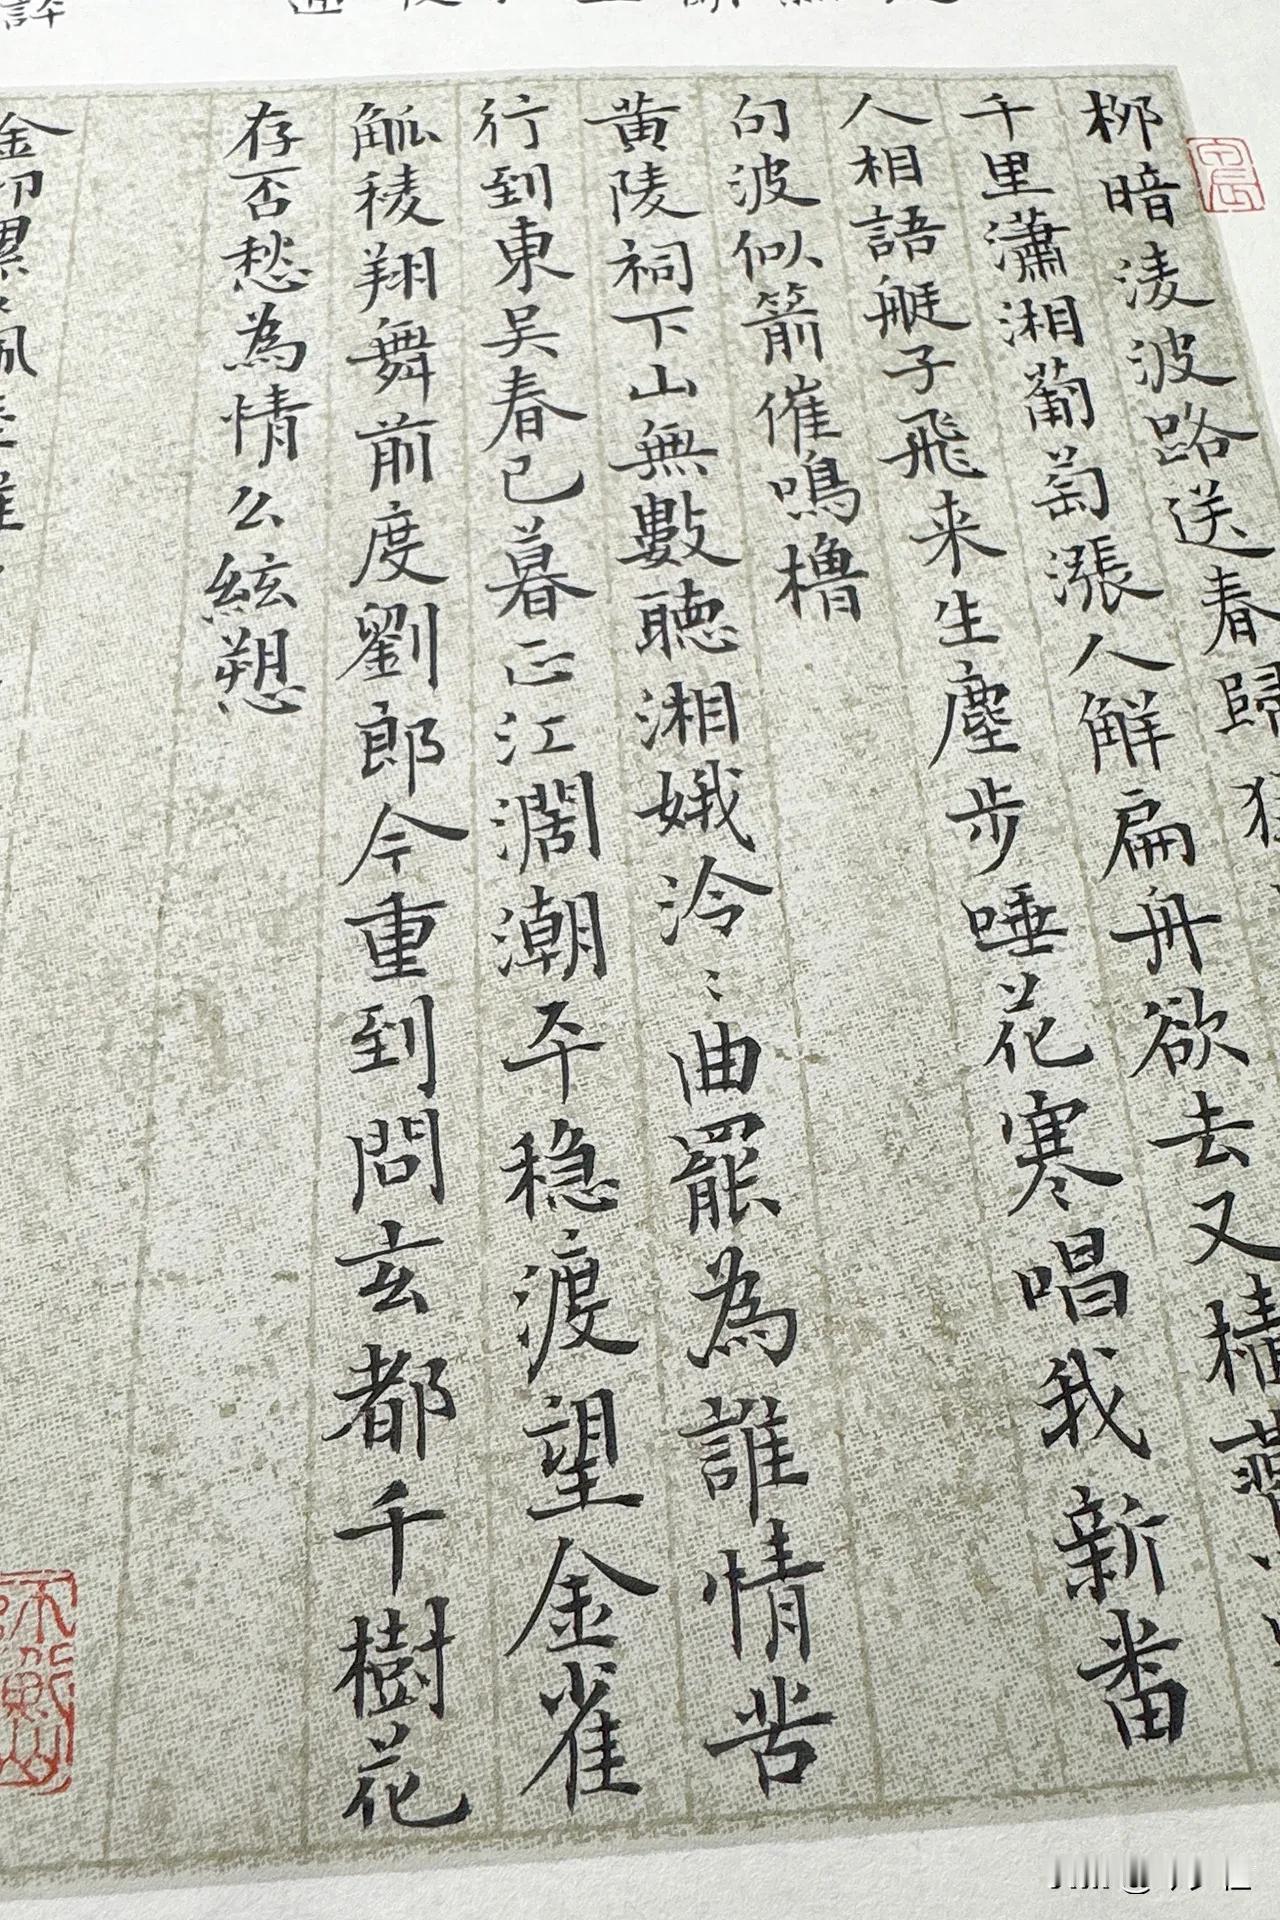 柳暗淩波路送春歸
千里瀟湘葡萄漲人解扁舟欲去又檣燕
人相語艇子飛来生塵步唾花寒唱我新番
句波似箭催鳴櫓
黄陵祠下山無數聽湘娥泠〻曲罷為誰情苦
行到東吳春已暮正江濶潮平稳渡望金雀
觚稜翔舞前度劉郎今重到問玄都千樹花
存否愁為情么絃愬
金印